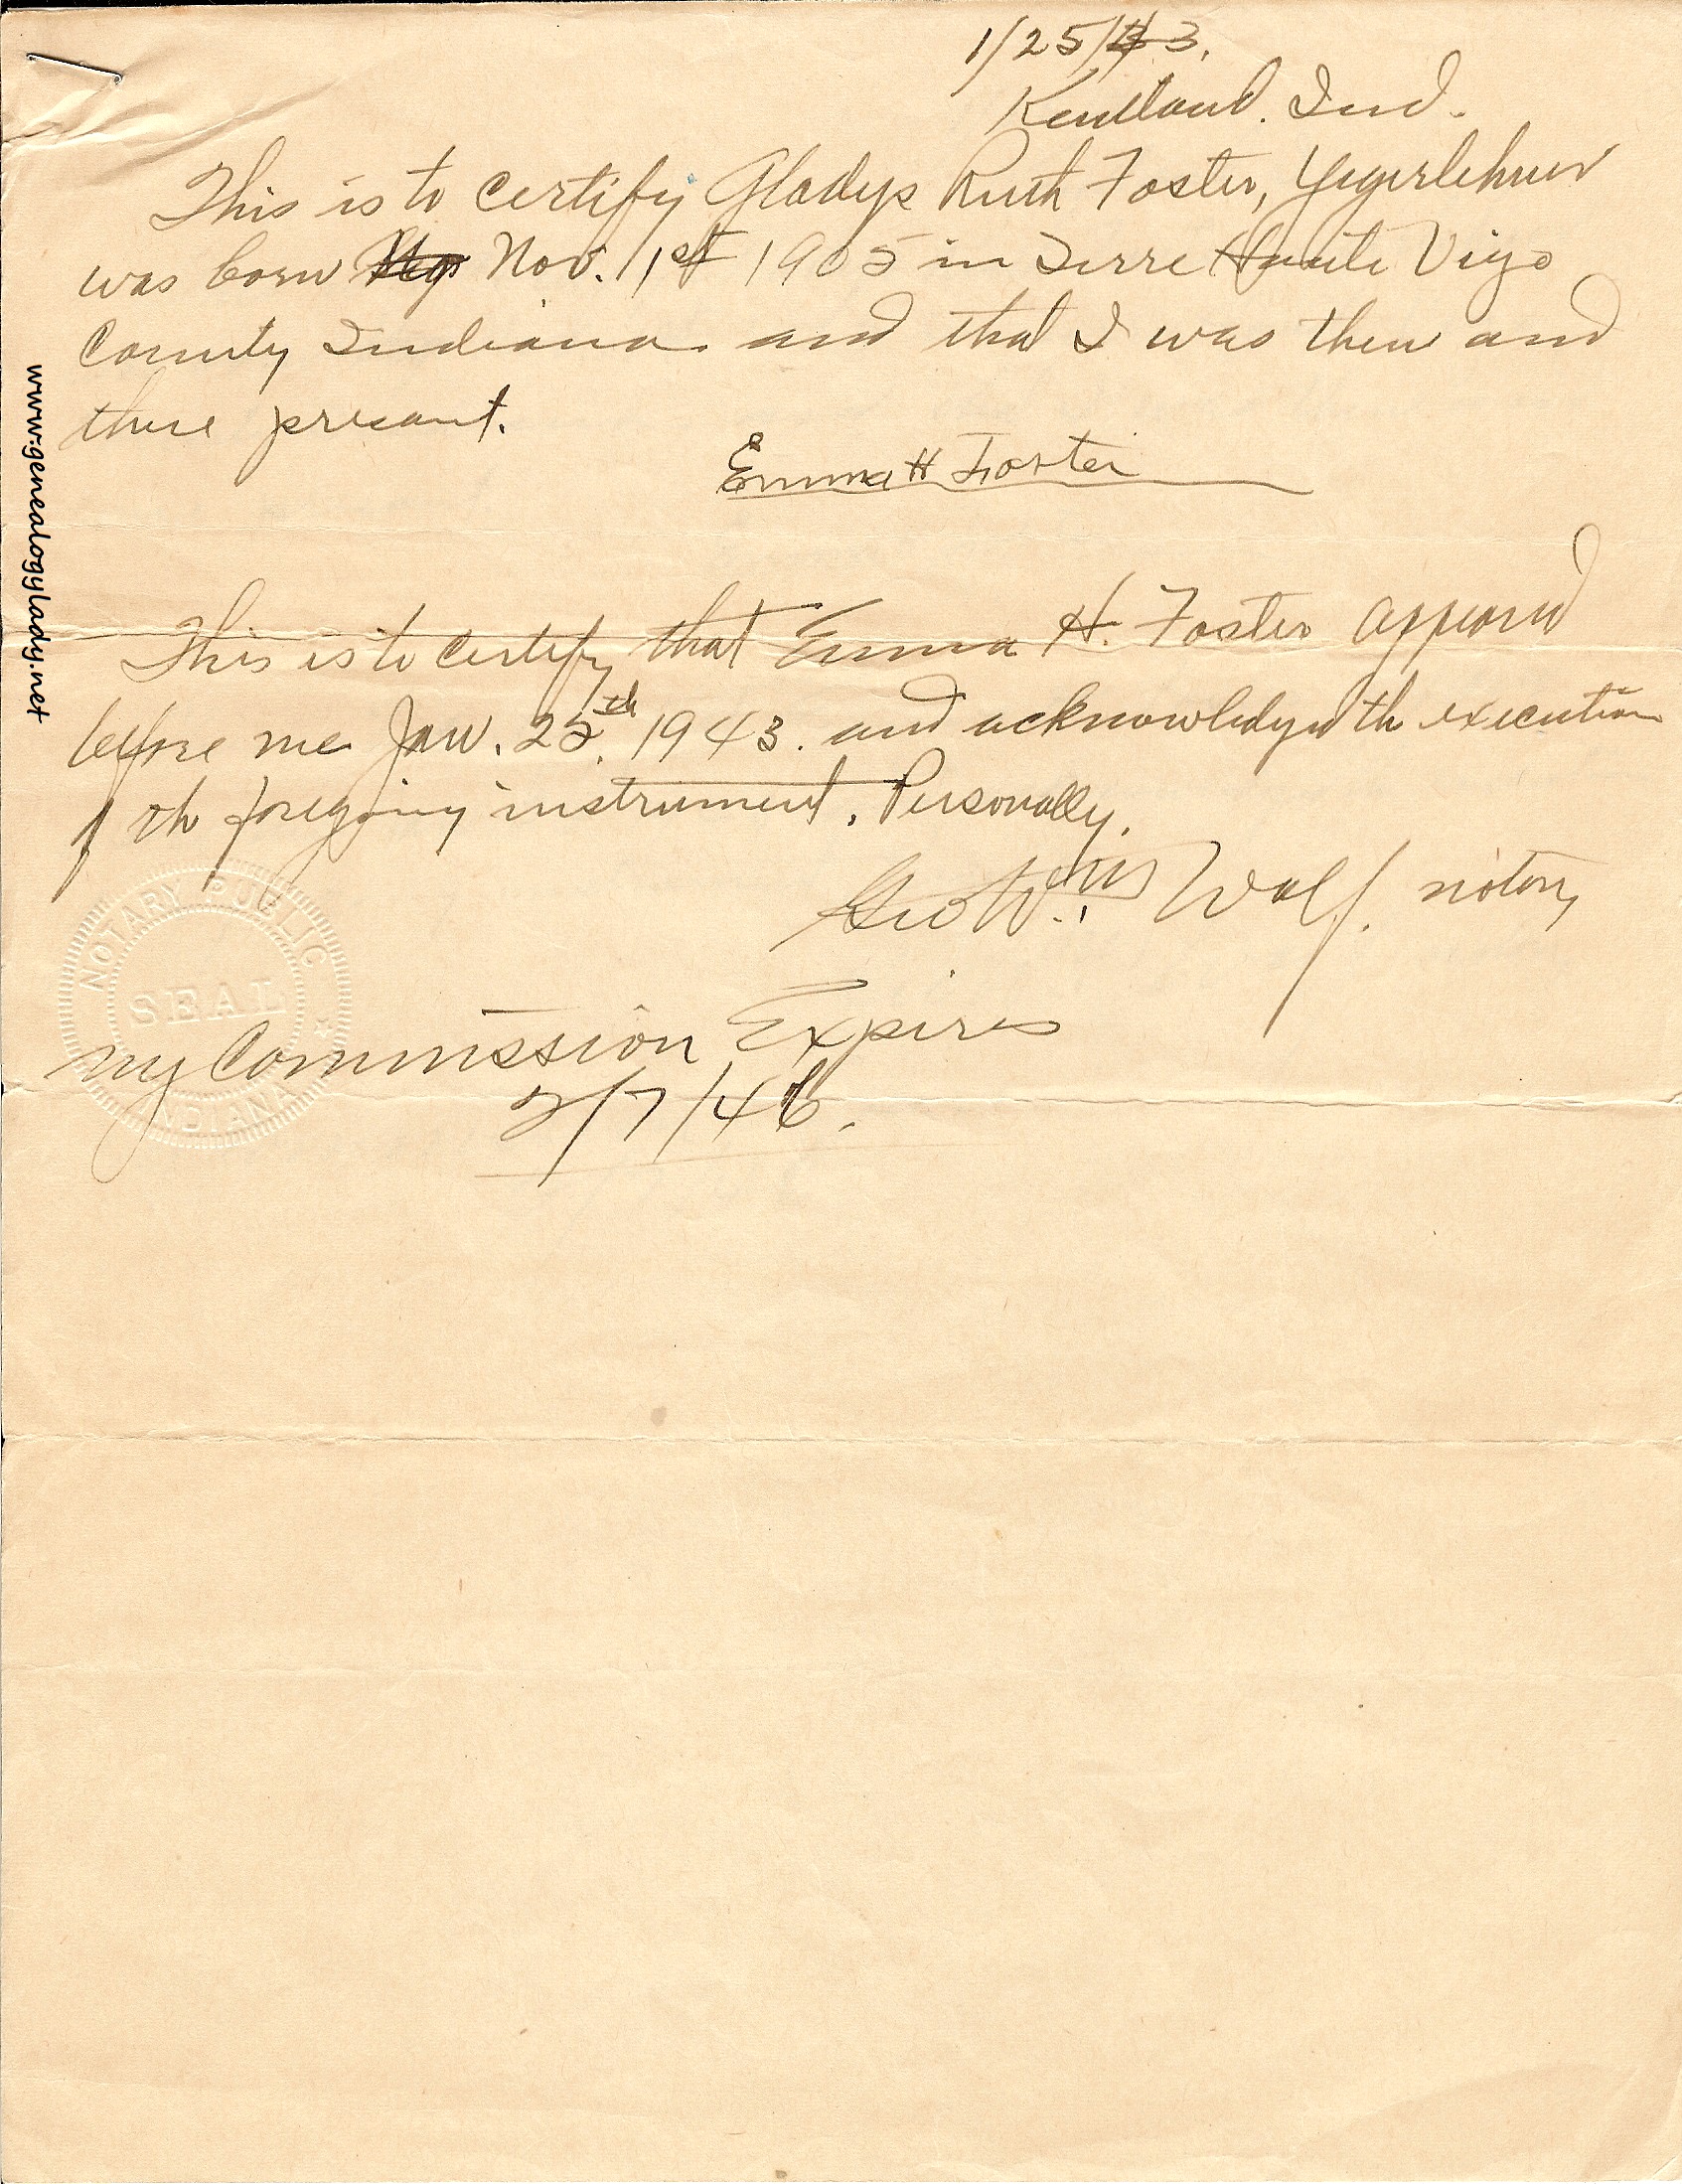 1/25/43.
Kentland. Ind.
This is to certify Gladys Ruth Foster, Yegerlehner
was born Nov. 1st 1905 in Terre Haute Vigo
County Indiana. and that I was then and
there present.
Emma H Foster
This is to certify that Emma H. Foster appeard
before me Jan. 25th. 1943. and acknowledged th execution
of th foregoing instrument. Personally.
Geo Wm Wolf. notory
NOTARY PUBLIC
SEAL
INDIANA
my Commission Expires
2/7/46.
www.genealogylady.net